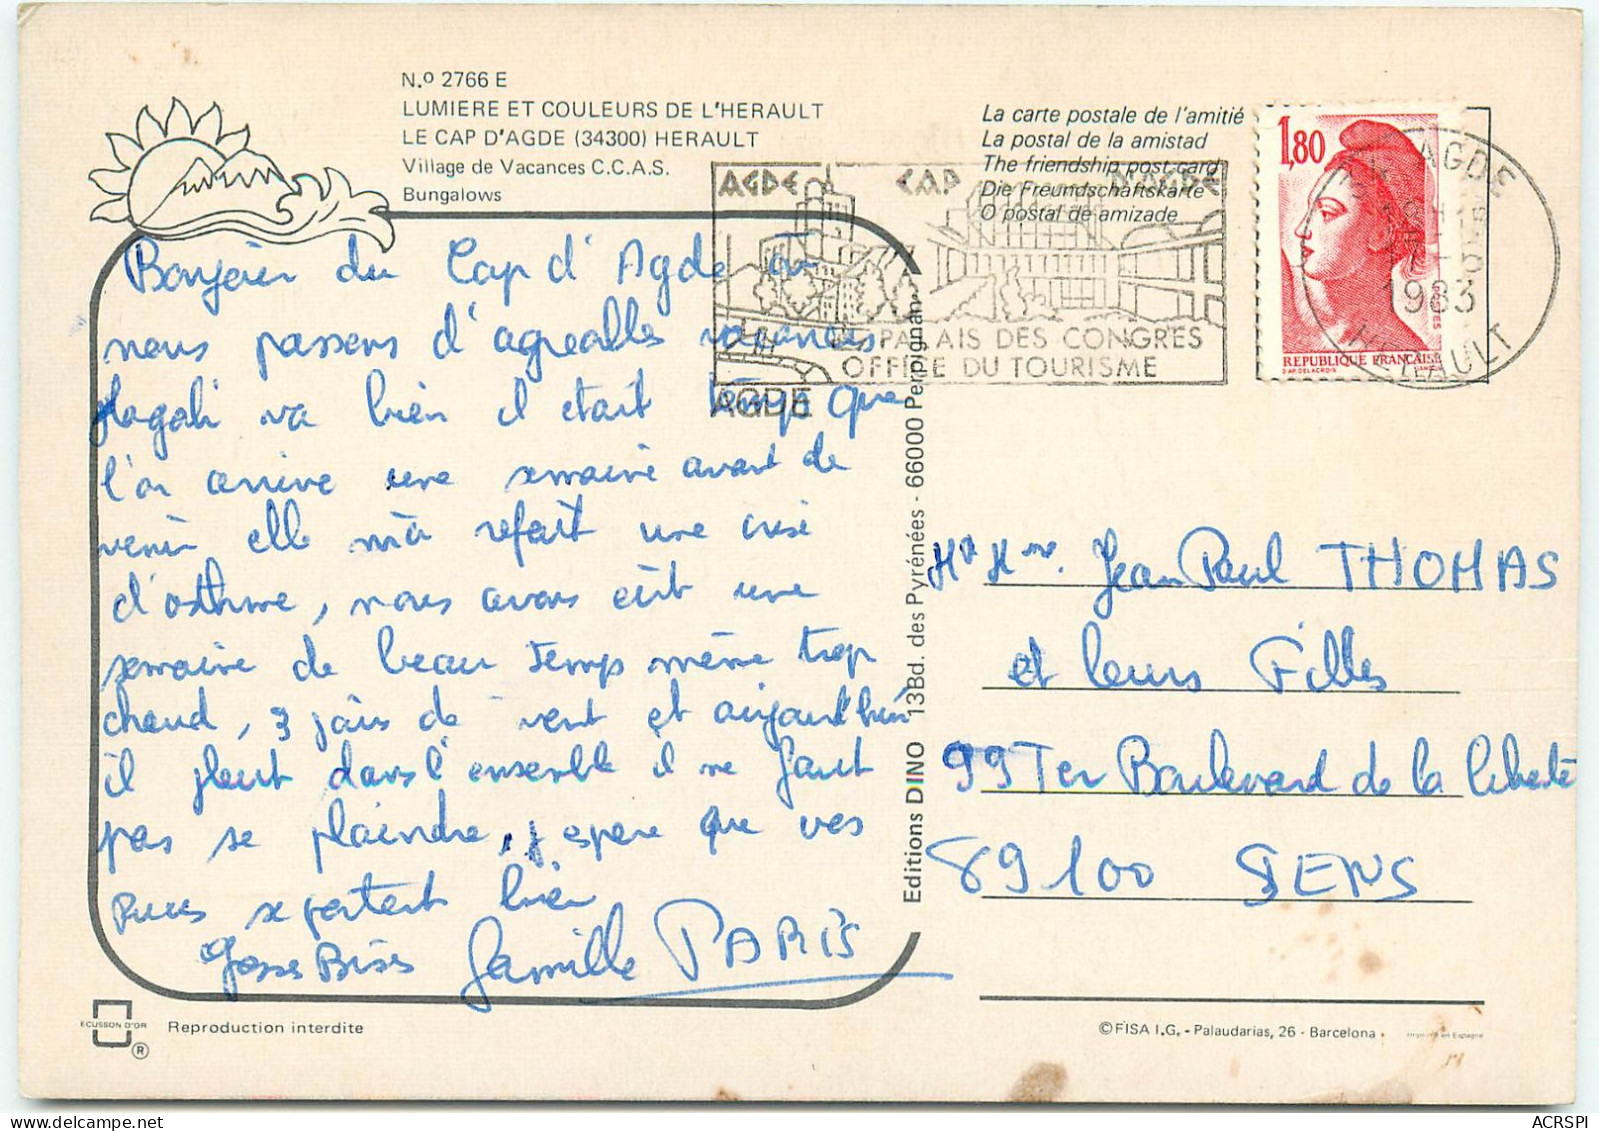 N.º 2766 E
LUMIERE ET COULEURS DE L'HERAULT
LE CAP D'AGDE (34300) HERAULT
Village de Vacances C.C.A.S.
Bungalows
La carte postale de l'amitié
La postal de la amistad
The friendship post card
Die Freundschaftskarte
O postal de amizade
AGDE CAP D'AGDE
PALAIS DES CONGRES
OFFICE DU TOURISME
AGDE
1,80
REPUBLIQUE FRANÇAISE
AGDE
1983
HERAULT
Bonjour du Cap d'Agde où
nous passons d'agreables vacances
Magali va bien il etait temps que
l'on arrive une semaine avant de
venir elle m'a refait une crise
d'osthme, nous avons eut une
semaine de beau temps même trop
chaud, 3 jours de vent et aujourd'hui
il pleut dans l'ensemble il ne faut
pas se plaindre, j'espere que vos
puces se portent bien
Gosses Bises famille PARIS
Editions DINO 13 Bd. des Pyrénées - 66000 Perpignan
Mr Mme. Jean Paul THOMAS
et leurs Filles
99 Ter Boulevard de la liberté
89100 SENS
ECUSSON D'OR
®
Reproduction interdite
© FISA I.G. - Palaudarias, 26 - Barcelona
Imprimé en Espagne
ACRSPI